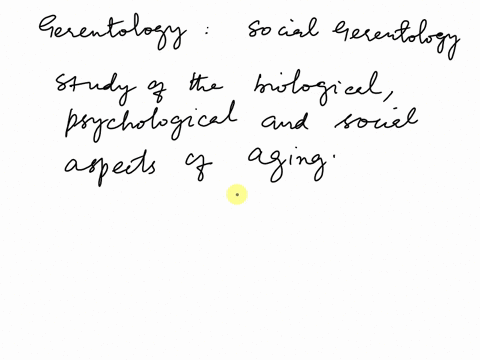 Gerentology : Social Gerentology
Study of the biological,
psychological and social
aspects of aging.